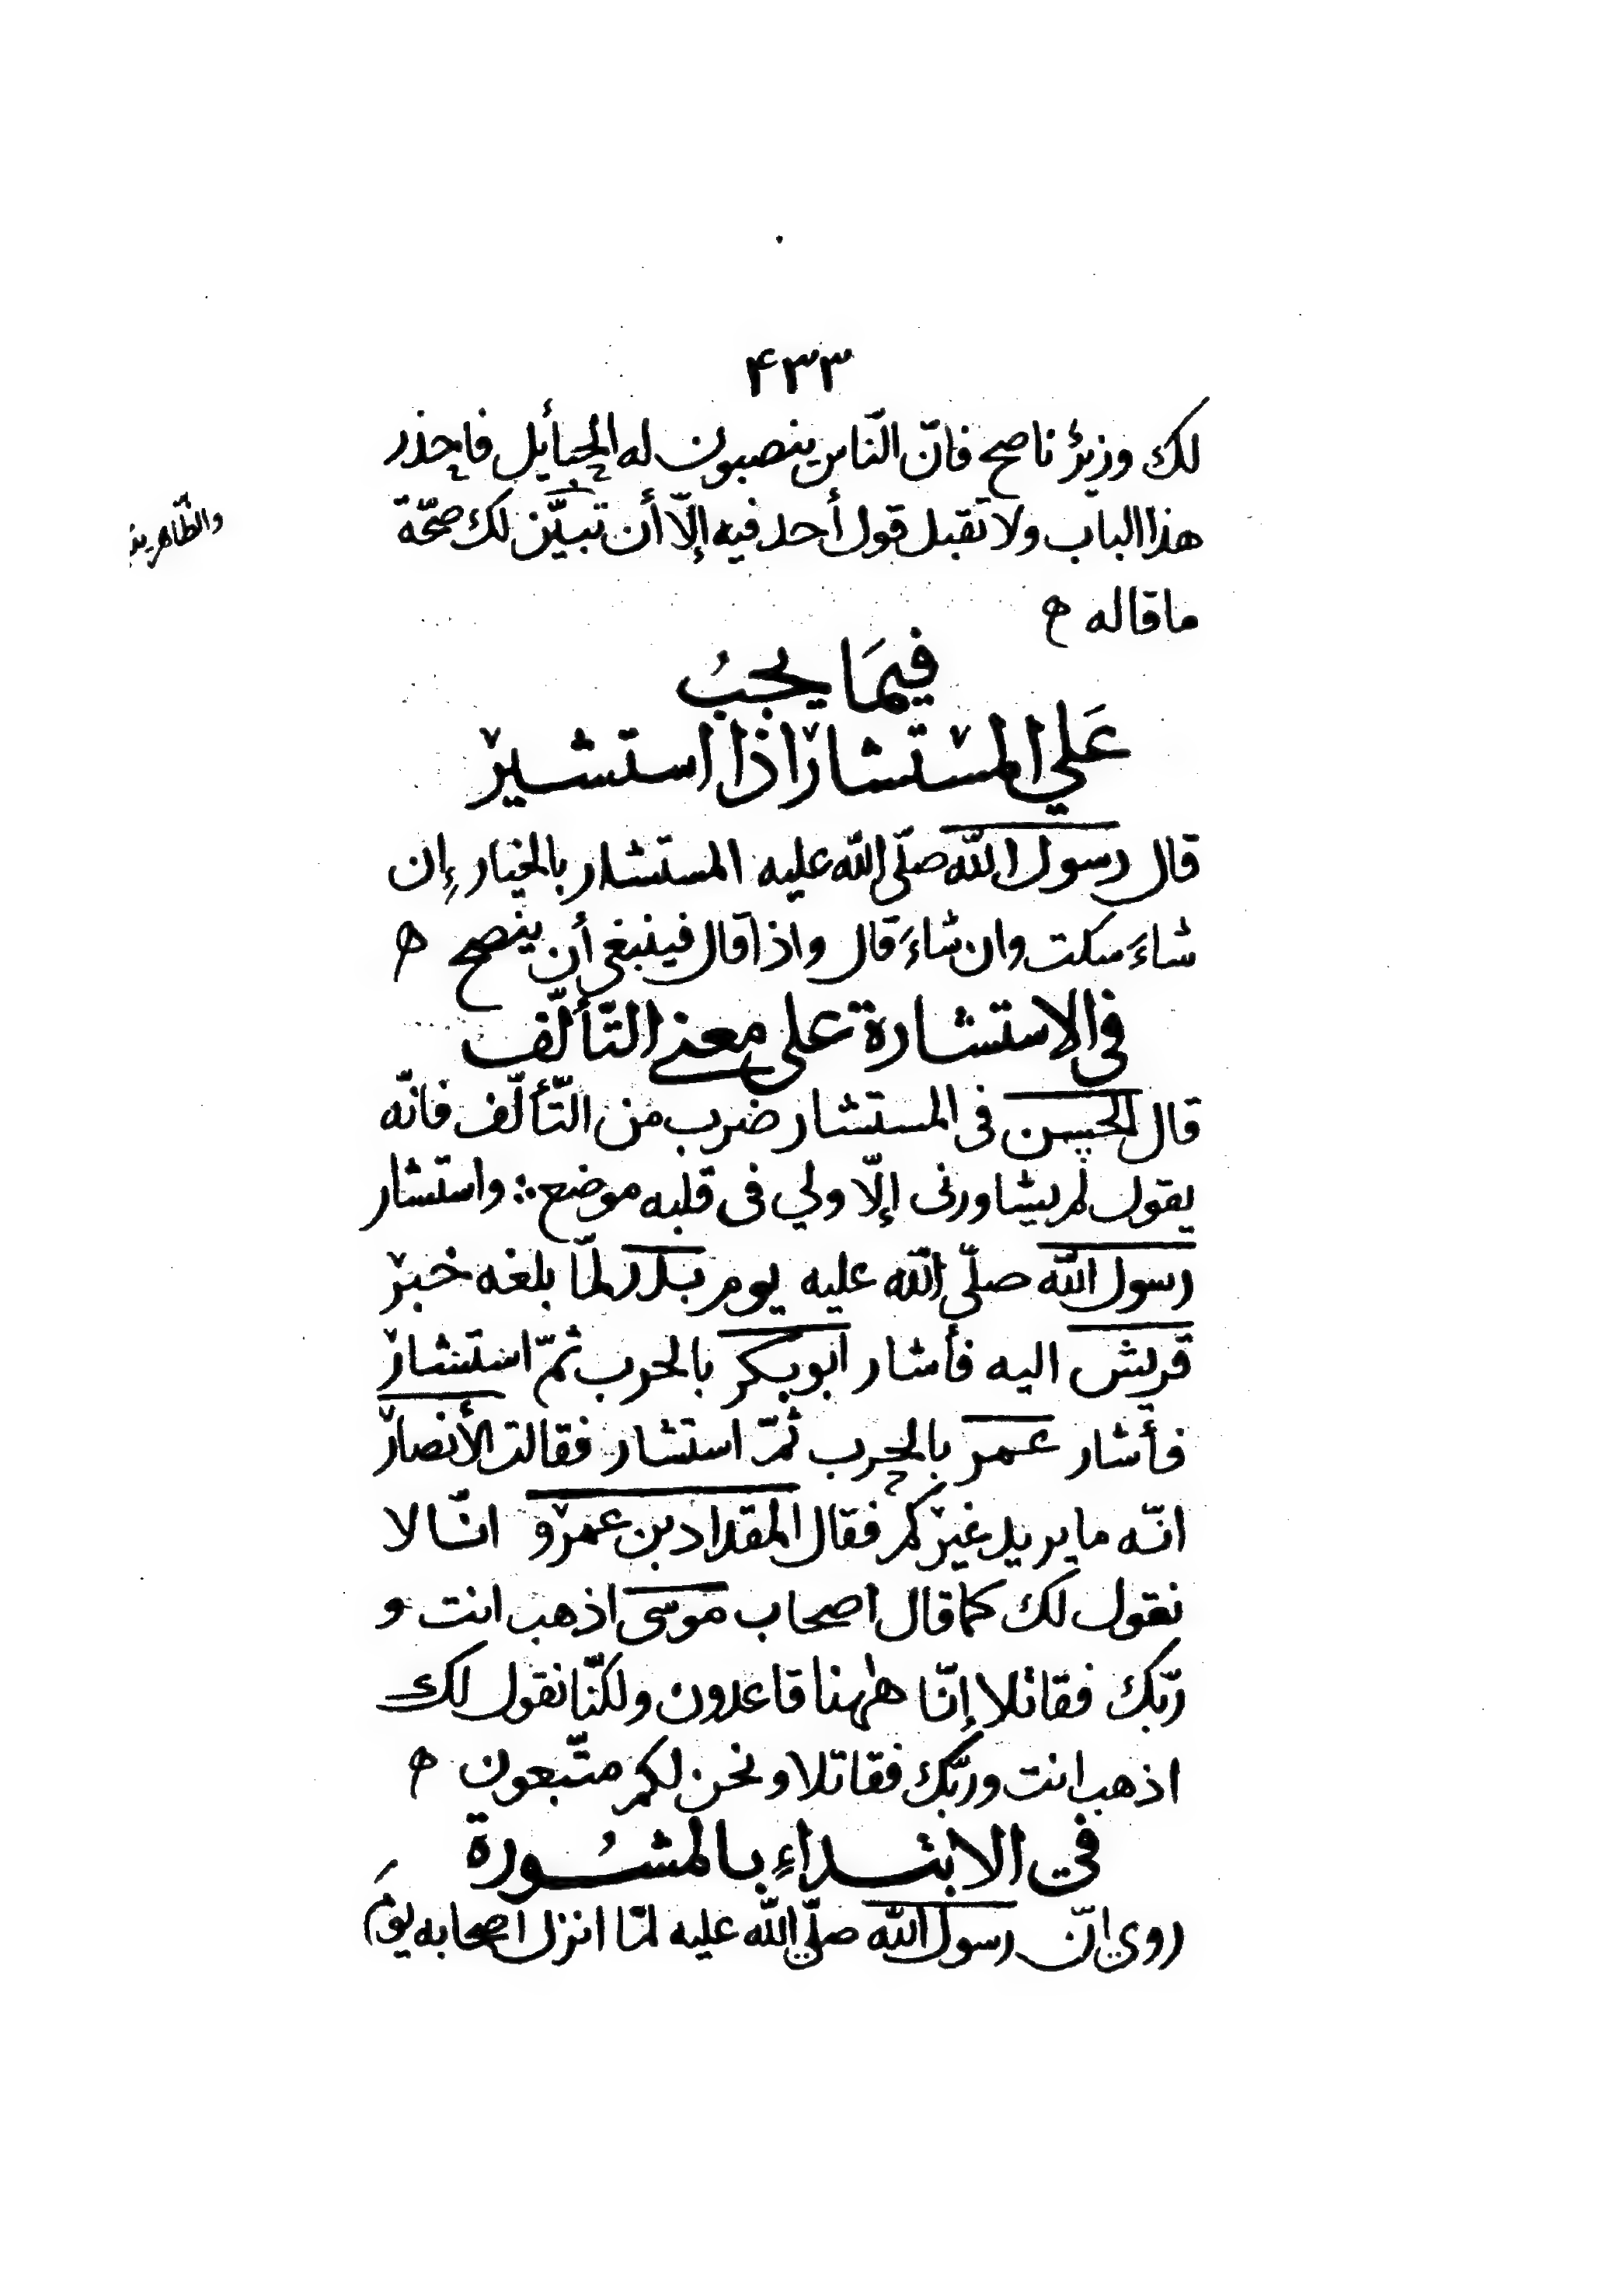 ۴۳۳
لك وزيرٌ ناصح فانّ النّاس ينصبون له الحبأيل فاحذر
هذا الباب ولا تقبل قول أحد فيه إلّا أن تبيّن لك صحّة
ما قاله ه
فيمَا يجبُ
عَلي المستشار اذا استشير
قال رسول الله صلّى الله عليه المستشار بالخيار إن
شاءَ سكت وان شاءَ قال واذا قال فينبغى أن ينصح ه
فى الاستشارة على معنى التّألّف
قال الحسن فى المستشار ضرب من التّألّف فانّه
يقول لم يشاورنى إلّا ولي فى قلبه موضع ∴ واستشار
رسول الله صلّى الله عليه يوم بدر لمّا بلغه خبر
قريش اليه فأشار ابو بكر بالحرب ثمّ استشار
فأشار عمر بالحرب ثمّ استشار فقالت الأنصار
انّه ما يريد غيركم فقال المقداد بن عمرو انّا لا
نقول لك كما قال اصحاب موسى اذهب انت و
ربّك فقاتلا إنّا هٰهنا قاعدون ولكنّا نقول لك
اذهب انت وربّك فقاتلا ونحن لكم متّبعون ه
في الابتداءِ بالمشُورة
روي انّ رسول الله صلّي الله عليه لمّا انزل اصحابه يومَ